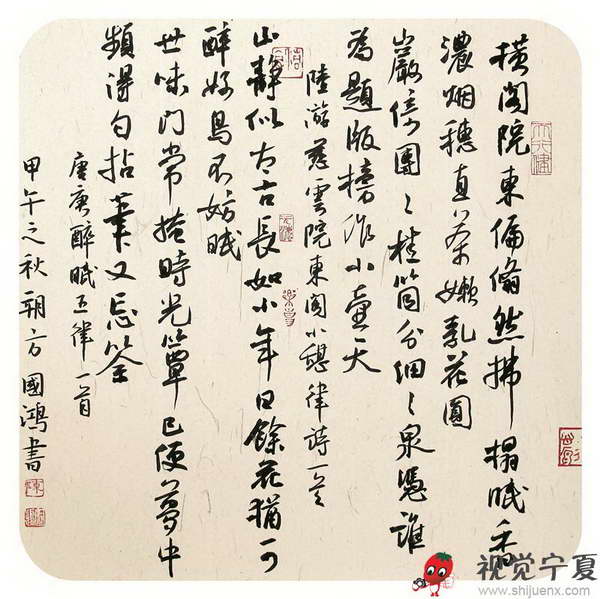 橫閣院東偏翛然拂榻眠香
濃烟穗直茶嫩乳花圓
巖倚團〻桂筒分細〻泉憑誰
為題版榜作小壺天
陸游慈雲院東閣小憩律詩一首
山靜似太古長如小年日餘花猶可
醉好鳥不妨眠
世味門常掩時光簟已便夢中
頻得句拈筆又忘筌
唐庚醉眠五律一首
甲午之秋朔方國鴻書
视觉宁夏
www.shijuenx.com